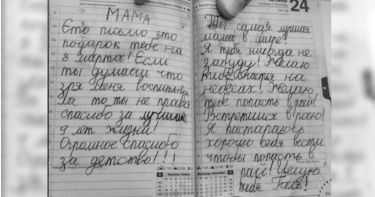 МАМА
Это письмо это
подарок тебе на
8 марта! Если
ты думаешь что
зря меня воспитывала
то ты не права
спасибо за лучшие
9 лет жизни!
Огромное спасибо
за детство!!!
24
Ты самая лучшая
мама в мире!
Я тебя никогда не
забуду! Желаю
тебе счастья на
небесах! Желаю
тебе попасть в рай!
Встретимся в раю!
Я постараюсь
хорошо себя вести
чтобы попасть в
рай! Целую
тебя